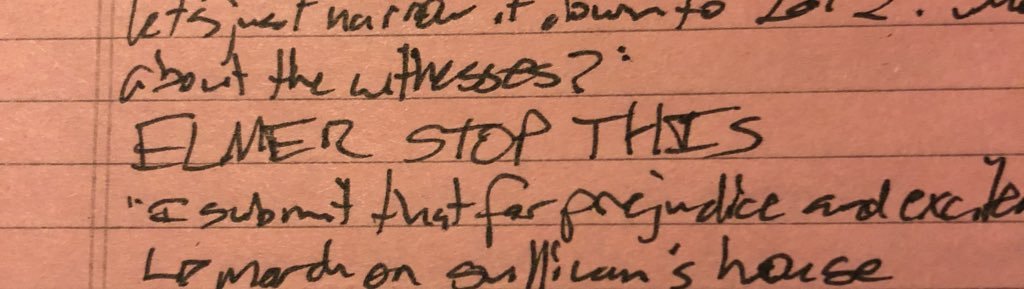 let's just narrow it down to 1 or 2.
about the witnesses?"
ELMER STOP THIS
"I submit that for prejudice and excitem
↳ march on sullivan's house